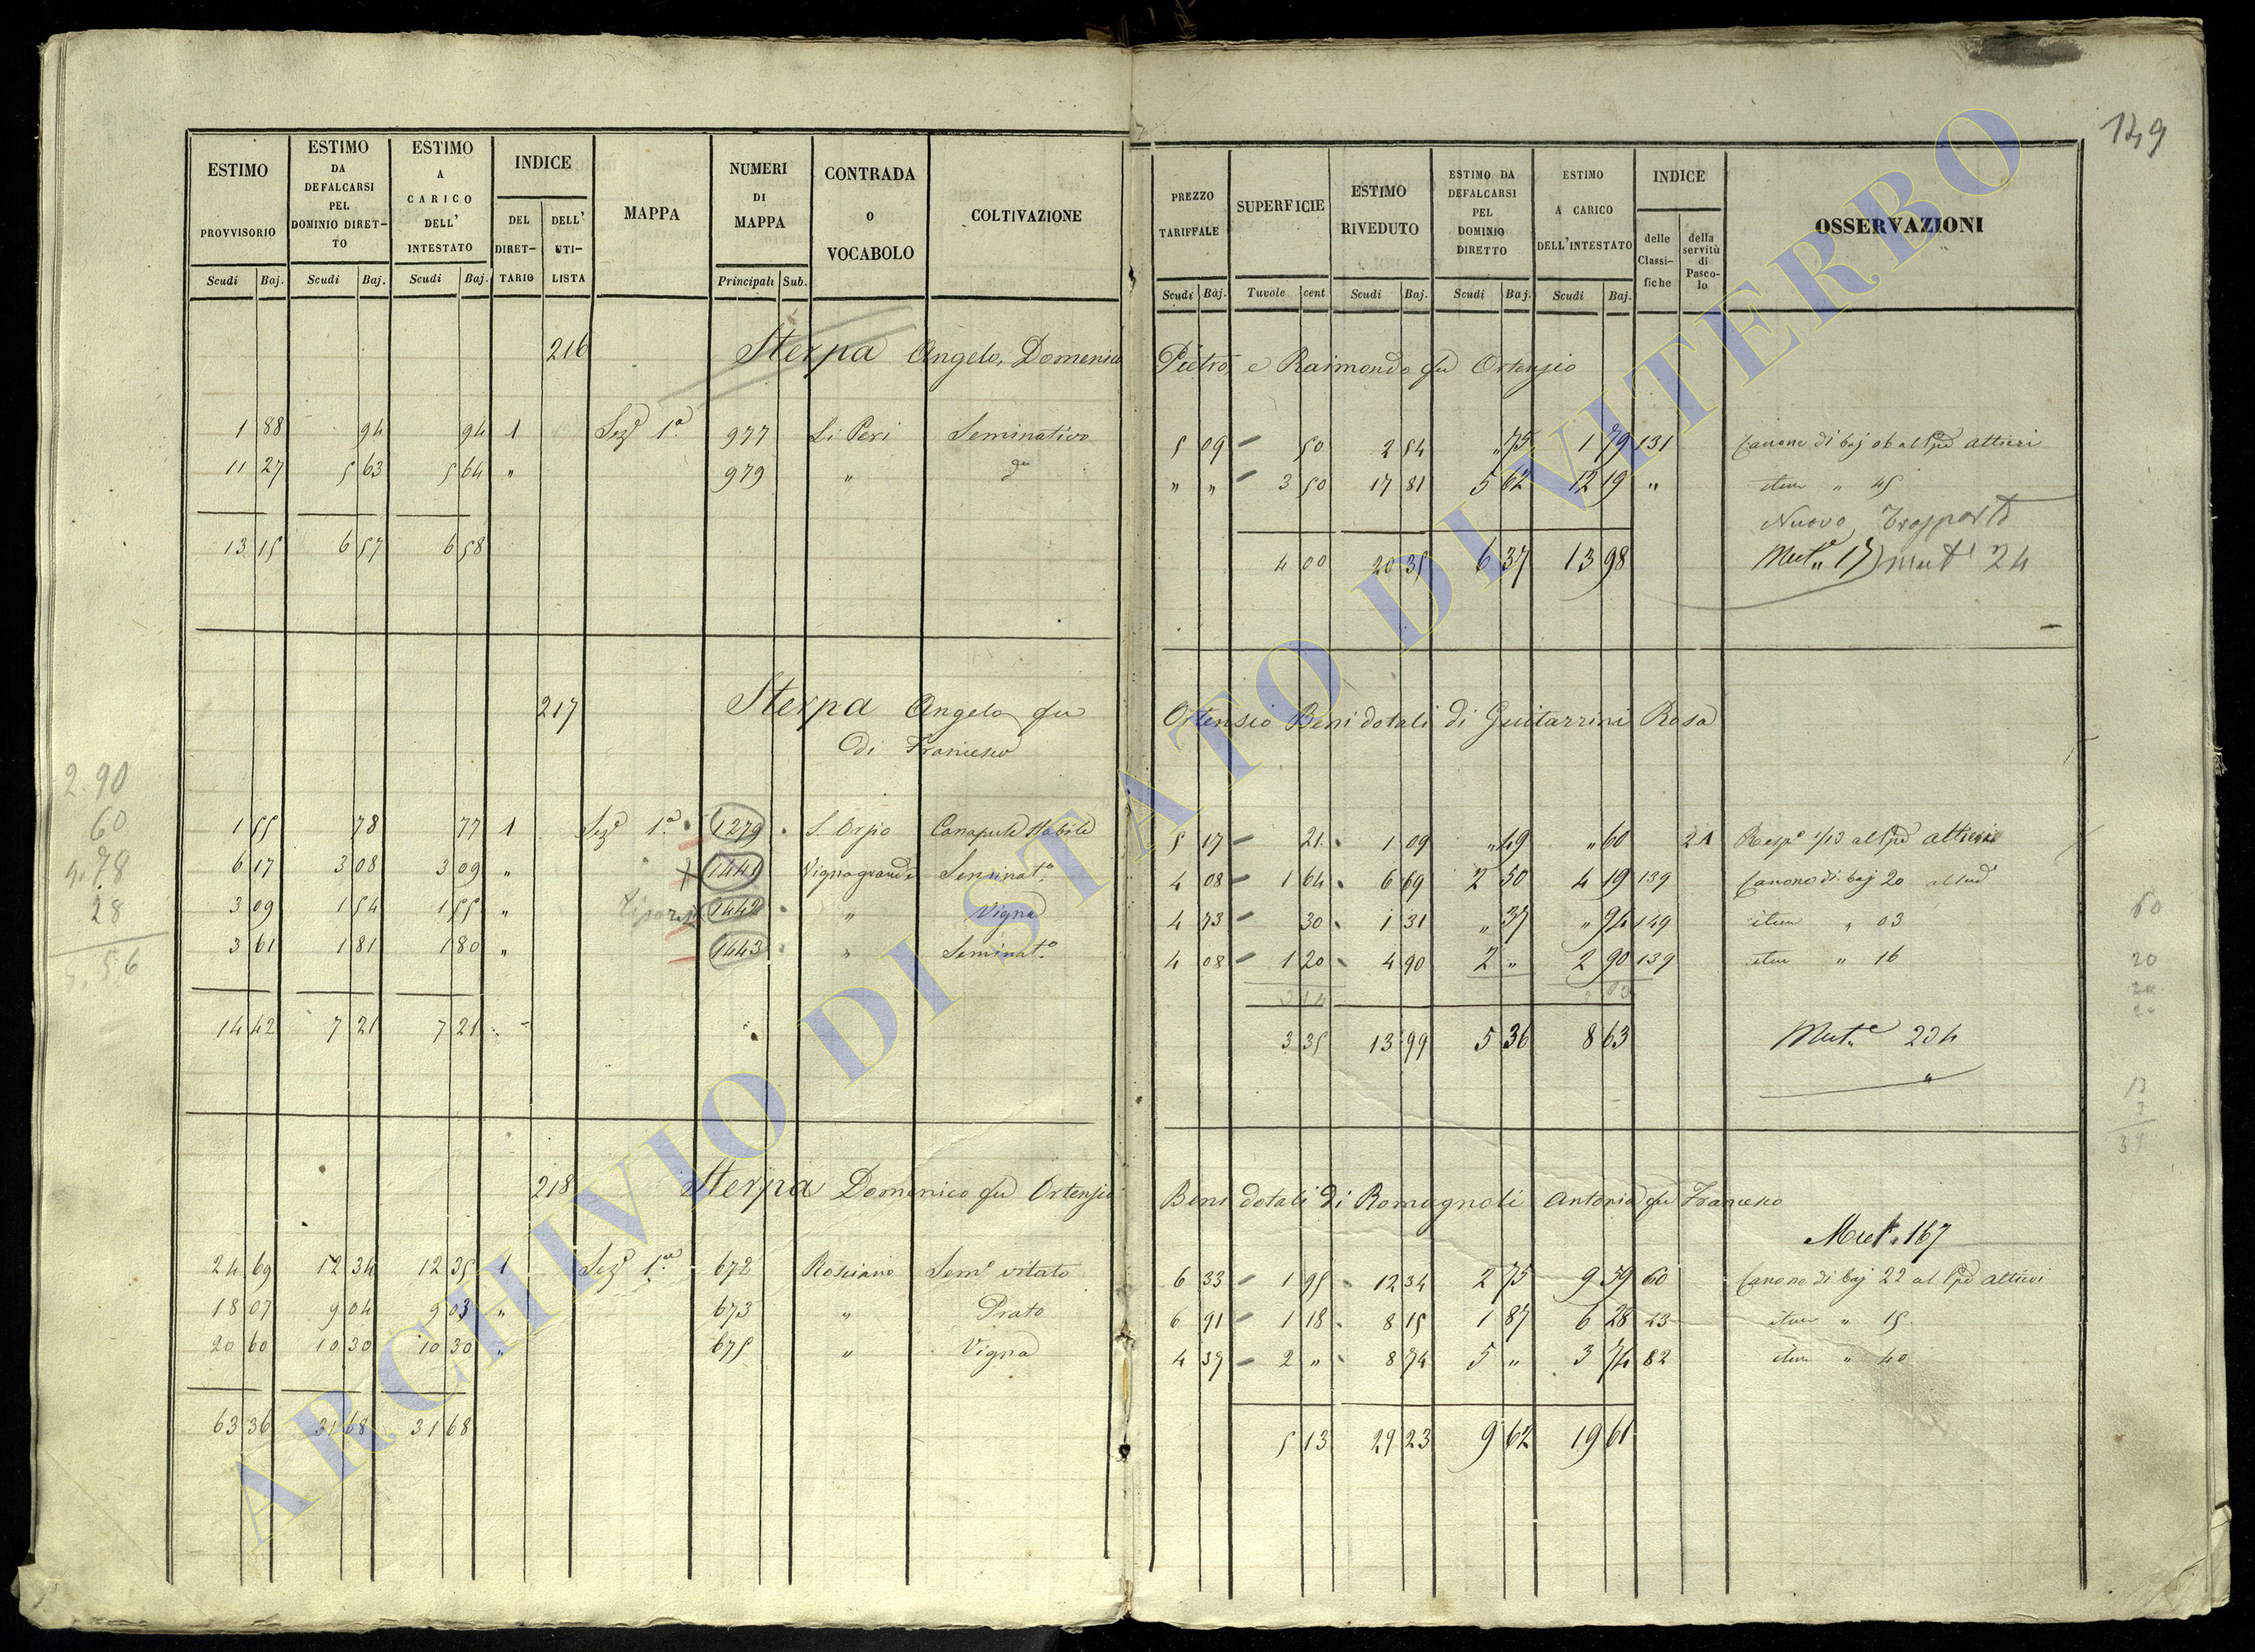 149
ESTIMO PROVVISORIO
ESTIMO DA DEFALCARSI PEL DOMINIO DIRET-TO
ESTIMO A CARICO DELL' INTESTATO
INDICE
DEL DIRET-TARIO
DELL' UTI-LISTA
MAPPA
NUMERI DI MAPPA
CONTRADA o VOCABOLO
COLTIVAZIONE
PREZZO TARIFFALE
SUPERFICIE
ESTIMO RIVEDUTO
ESTIMO DA DEFALCARSI PEL DOMINIO DIRETTO
ESTIMO A CARICO DELL'INTESTATO
INDICE
delle Classi-fiche
della servitù di Pasco-lo
OSSERVAZIONI
Scudi Baj. Scudi Baj. Scudi Baj. Principali Sub. Scudi Baj. Tavole cent. Scudi Baj. Scudi Baj. Scudi Baj.
216 Sterpa Angelo, Domenico Pietro, e Raimondo fu Ortenzio
1 88 94 94 1 Sezᵉ 1ª 977 Li Peri Seminativo 5 09 50 2 54 " 75 1 79 131 Canone di baj 06 al Altieri
11 27 5 63 5 64 " 979 " dº " " 3 50 17 81 5 62 12 19 " item " 45
Nuovo Trasporto
13 15 6 57 6 58 4 00 20 35 6 37 13 98 Mut. 17 Mut 24
217 Sterpa Angelo fu Ortensio Beni dotali di Guitarrini Rosa
di Francesco
1 55 78 77 1 Sezᵉ 1ª 1279 S. Orsio Canapule Stabile 5 17 21 1 09 " 49 " 60 21 Rispº 1/13 al Altieri
6 17 3 08 3 09 " 1441 Vignagrande Seminatº 4 08 1 64 6 69 2 50 4 19 139 Canone di baj 20
3 09 1 54 1 55 " 1442 " Vigna 4 73 30 1 31 " 37 " 94 149 item " 03
3 61 1 81 1 80 " 1443 " Seminatº 4 08 1 20 4 90 2 " 2 90 139 item " 16
14 42 7 21 7 21 3 35 13 99 5 36 8 63 Mutᵉ 234
218 Sterpa Domenico fu Ortenzio Beni dotali di Romagnoli Antonia fu Francesco
Mut. 167
24 69 12 34 12 35 1 Sezᵉ 1ª 672 Rosciano Semᵉ vitato 6 33 1 95 12 34 2 75 9 59 60 Canone di baj 22 al Altieri
18 07 9 04 9 03 " 673 " Prato 6 91 1 18 8 15 1 87 6 28 23 item " 15
20 60 10 30 10 30 " 675 " Vigna 4 37 2 " 8 74 5 " 3 74 82 item " 40
63 36 31 68 31 68 5 13 29 23 9 62 19 61
2.90
60
4.78
28
60
20
ARCHIVIO DI STATO DI VITERBO